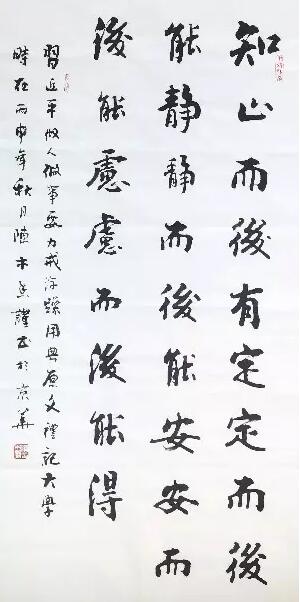 知止而後有定定而後
能静静而後能安安而
後能慮慮而後能得
習近平做人做事要力戒浮躁用典原文禮記大學
時在丙申年秋月陳木生謹書於京華